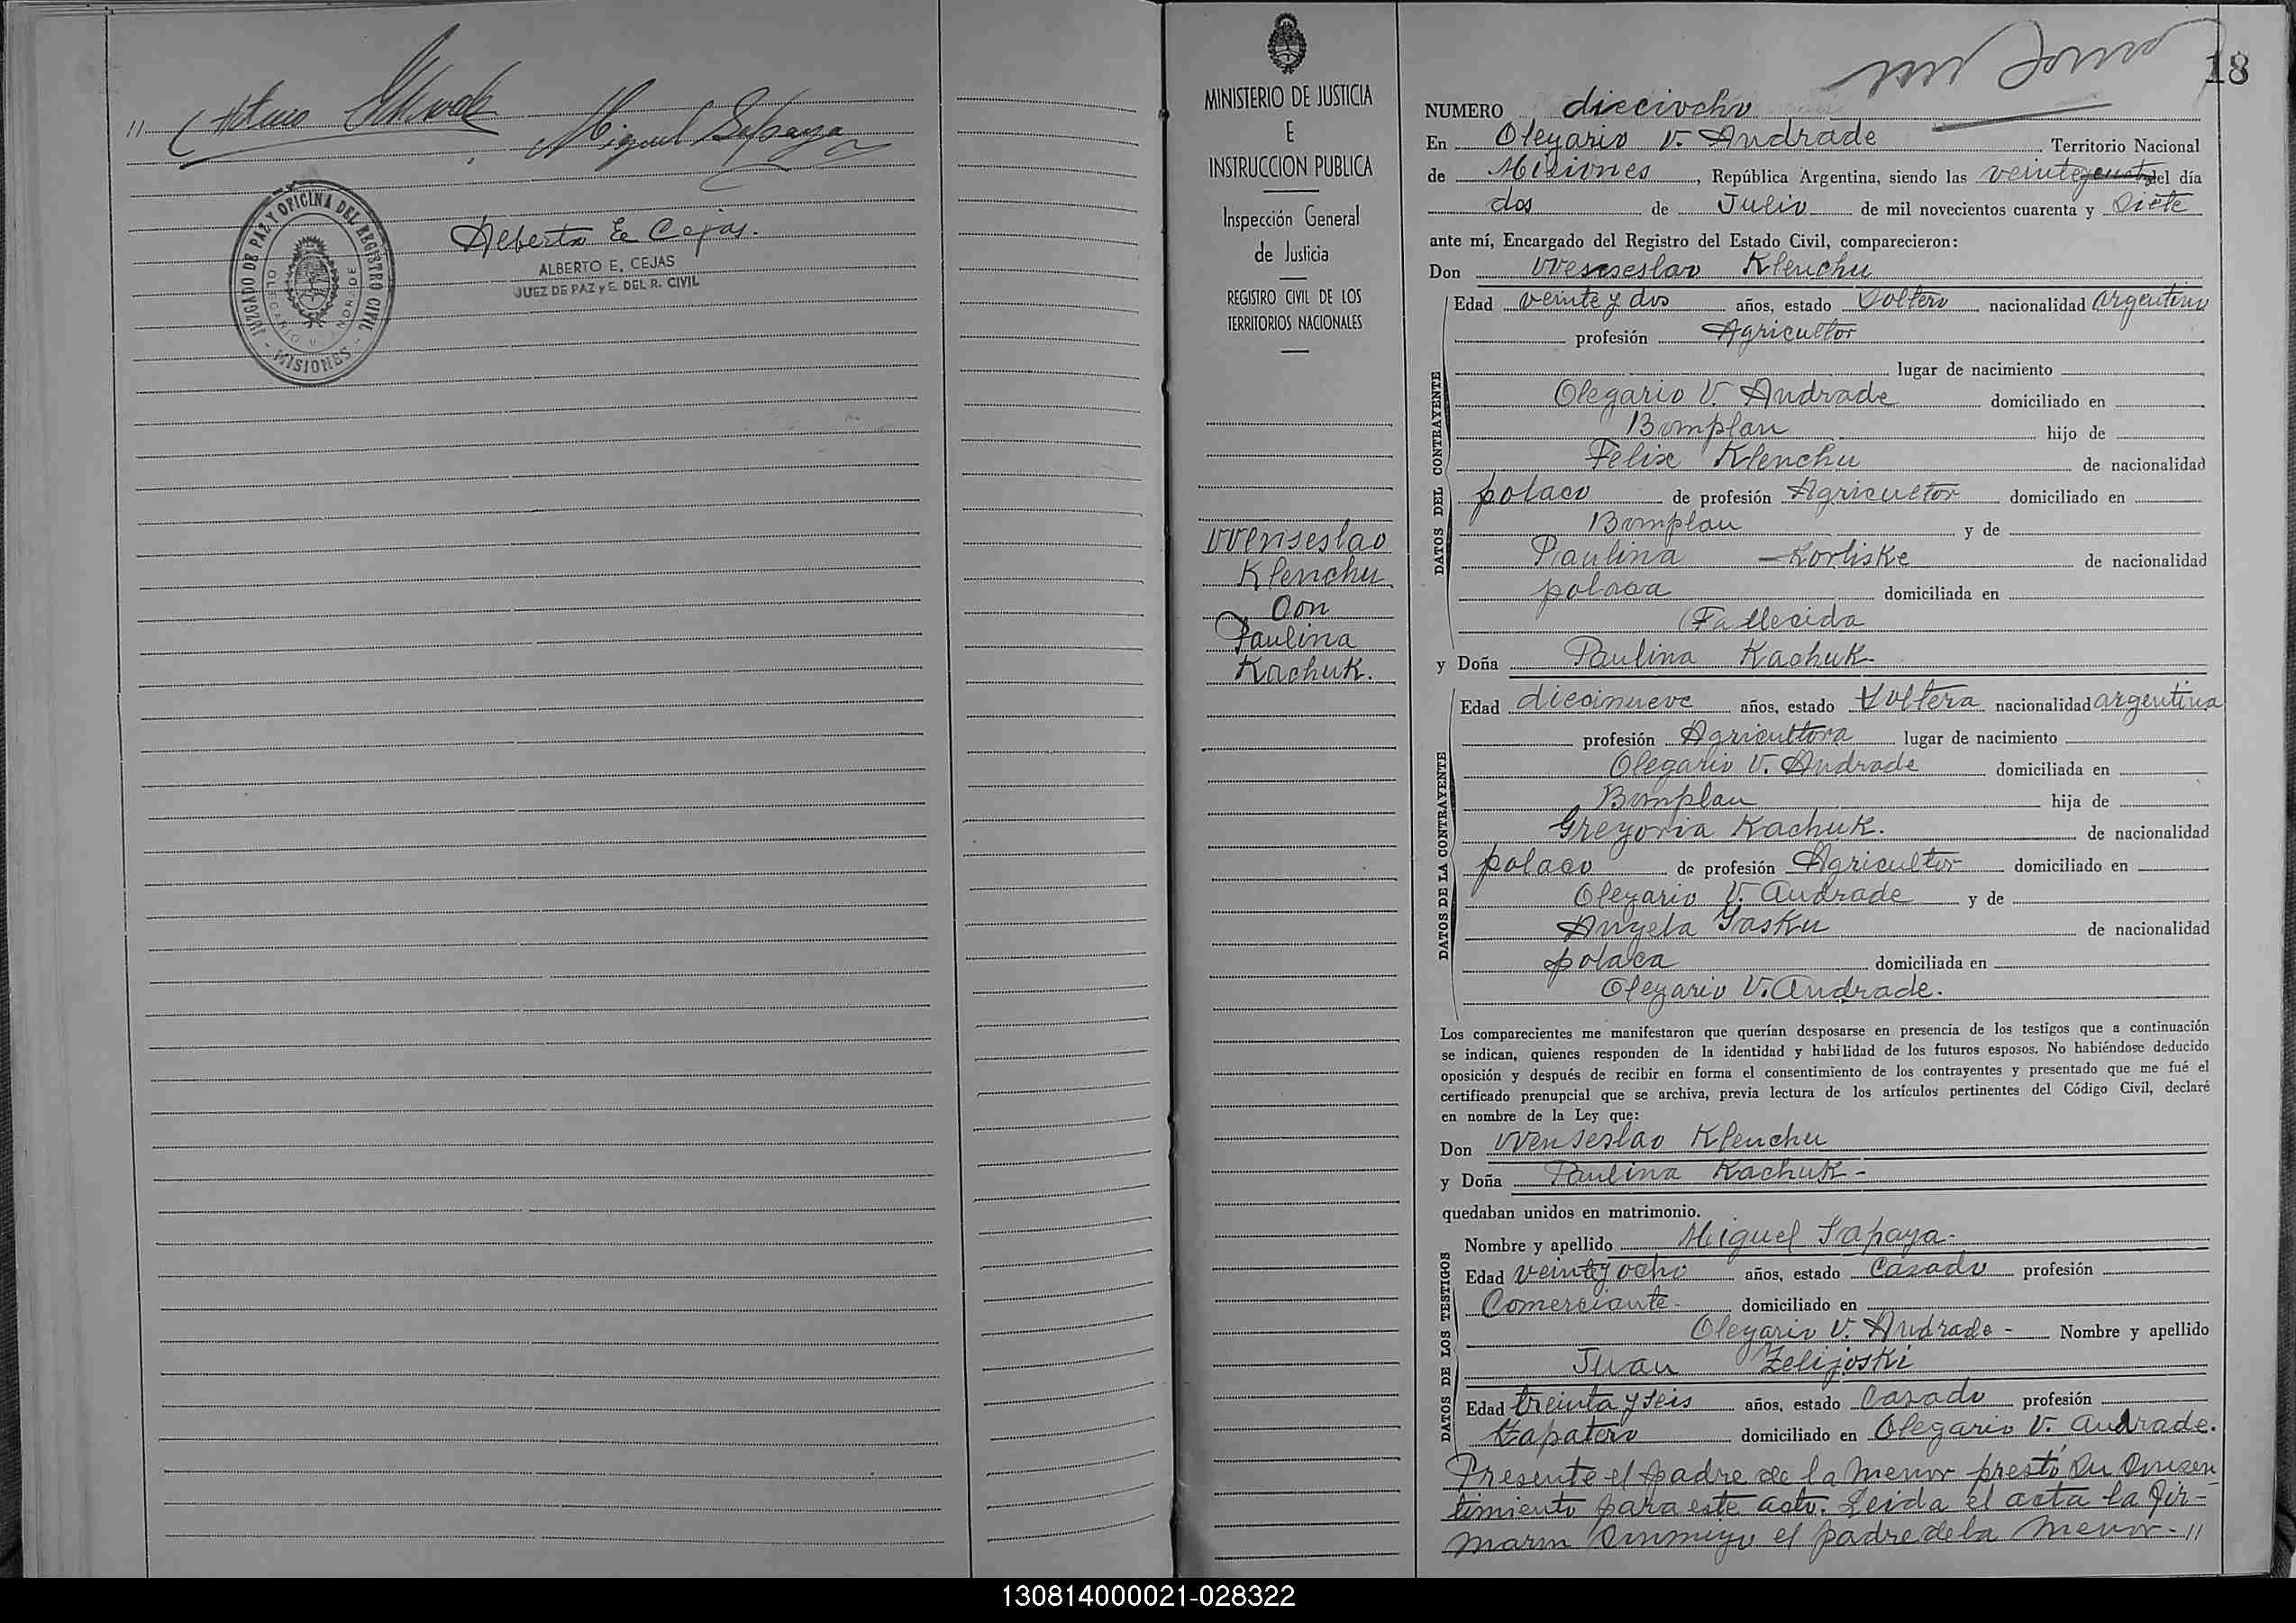 Miguel Sapaya
JUZGADO DE PAZ Y OFICINA DEL REGISTRO CIVIL
- MISIONES -
Alberto E Cejas.
ALBERTO E. CEJAS
JUEZ DE PAZ y E. DEL R. CIVIL
MINISTERIO DE JUSTICIA
E
INSTRUCCION PUBLICA
Inspección General
de Justicia
REGISTRO CIVIL DE LOS
TERRITORIOS NACIONALES
Wenseslao
Klenchu
Con
Paulina
Kachuk.
18
NUMERO dieciocho
En Olegario V. Andrade Territorio Nacional
de Misiones, República Argentina, siendo las veinte del día
dos de Julio de mil novecientos cuarenta y Siete
ante mí, Encargado del Registro del Estado Civil, comparecieron:
Don Wenseslao Klenchu
DATOS DEL CONTRAYENTE
Edad veinte y dos años, estado Soltero nacionalidad argentino
profesión Agricultor
lugar de nacimiento
Olegario V. Andrade domiciliado en
Bomplan hijo de
Felix Klenchu de nacionalidad
polaco de profesión Agricultor domiciliado en
Bomplan y de
Paulina Korliske de nacionalidad
polaca domiciliada en
Fallecida
y Doña Paulina Kachuk
DATOS DE LA CONTRAYENTE
Edad diecinueve años, estado Soltera nacionalidad argentina
profesión Agricultora lugar de nacimiento
Olegario V. Andrade domiciliada en
Bomplan hija de
Gregoria Kachuk. de nacionalidad
polaco de profesión Agricultor domiciliado en
Olegario V. Andrade y de
Angela Sasku de nacionalidad
polaca domiciliada en
Olegario V. Andrade.
Los comparecientes me manifestaron que querían desposarse en presencia de los testigos que a continuación
se indican, quienes responden de la identidad y habilidad de los futuros esposos. No habiéndose deducido
oposición y después de recibir en forma el consentimiento de los contrayentes y presentado que me fué el
certificado prenupcial que se archiva, previa lectura de los artículos pertinentes del Código Civil, declaré
en nombre de la Ley que:
Don Wenseslao Klenchu
y Doña Paulina Kachuk -
quedaban unidos en matrimonio.
DATOS DE LOS TESTIGOS
Nombre y apellido Miguel Sapaya -
Edad veinte y ocho años, estado Casado profesión
Comerciante - domiciliado en
Olegario V. Andrade - Nombre y apellido
Juan Zelijoski
Edad treinta y seis años, estado Casado profesión
Zapatero domiciliado en Olegario V. Andrade.
Presente el padre de la menor prestó su consen
timiento para este acto. Leida el acta la fir-
maron conmigo el padre de la menor - //
130814000021-028322